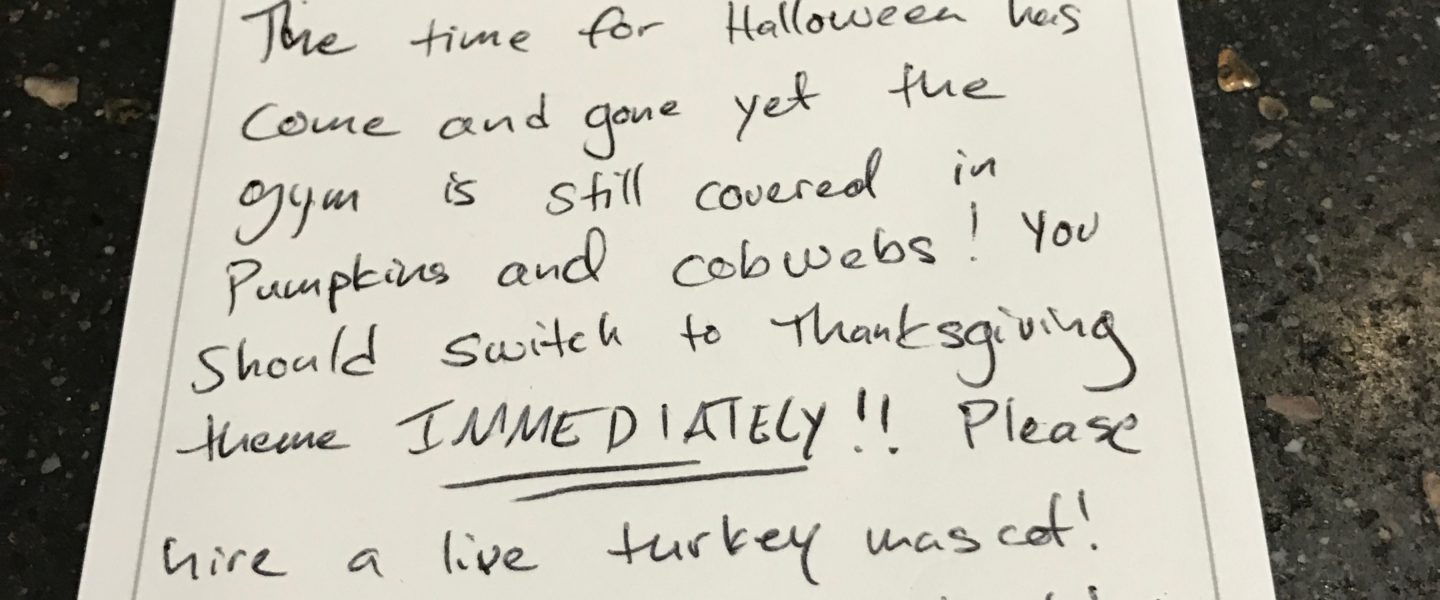 The time for Halloween has
come and gone yet the
gym is still covered in
Pumpkins and cobwebs! You
Should switch to Thanksgiving
theme IMMEDIATELY!! Please
hire a live turkey mascot!